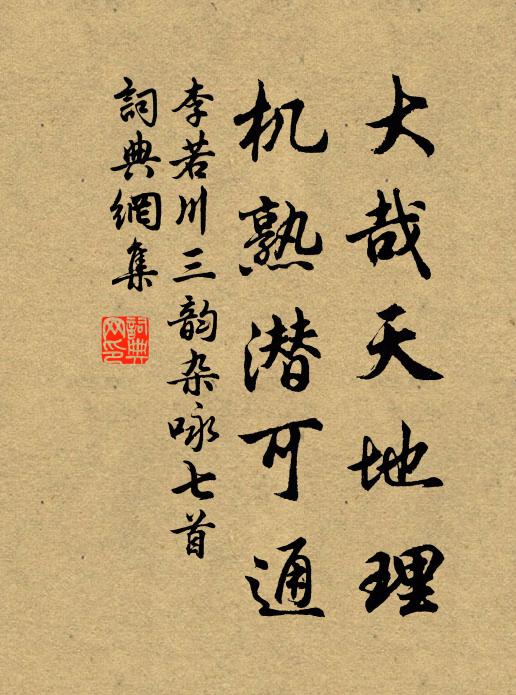 大哉天地理
机熟潜可通
李若川三韵杂咏七首
詞典網集
詞典网印